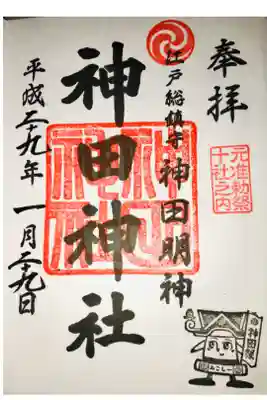 奉拝
元准勅祭
十社之内
江戸総鎮守 神田明神
神田神社
平成二十九年 一月二十九日
神田明神
みこしー